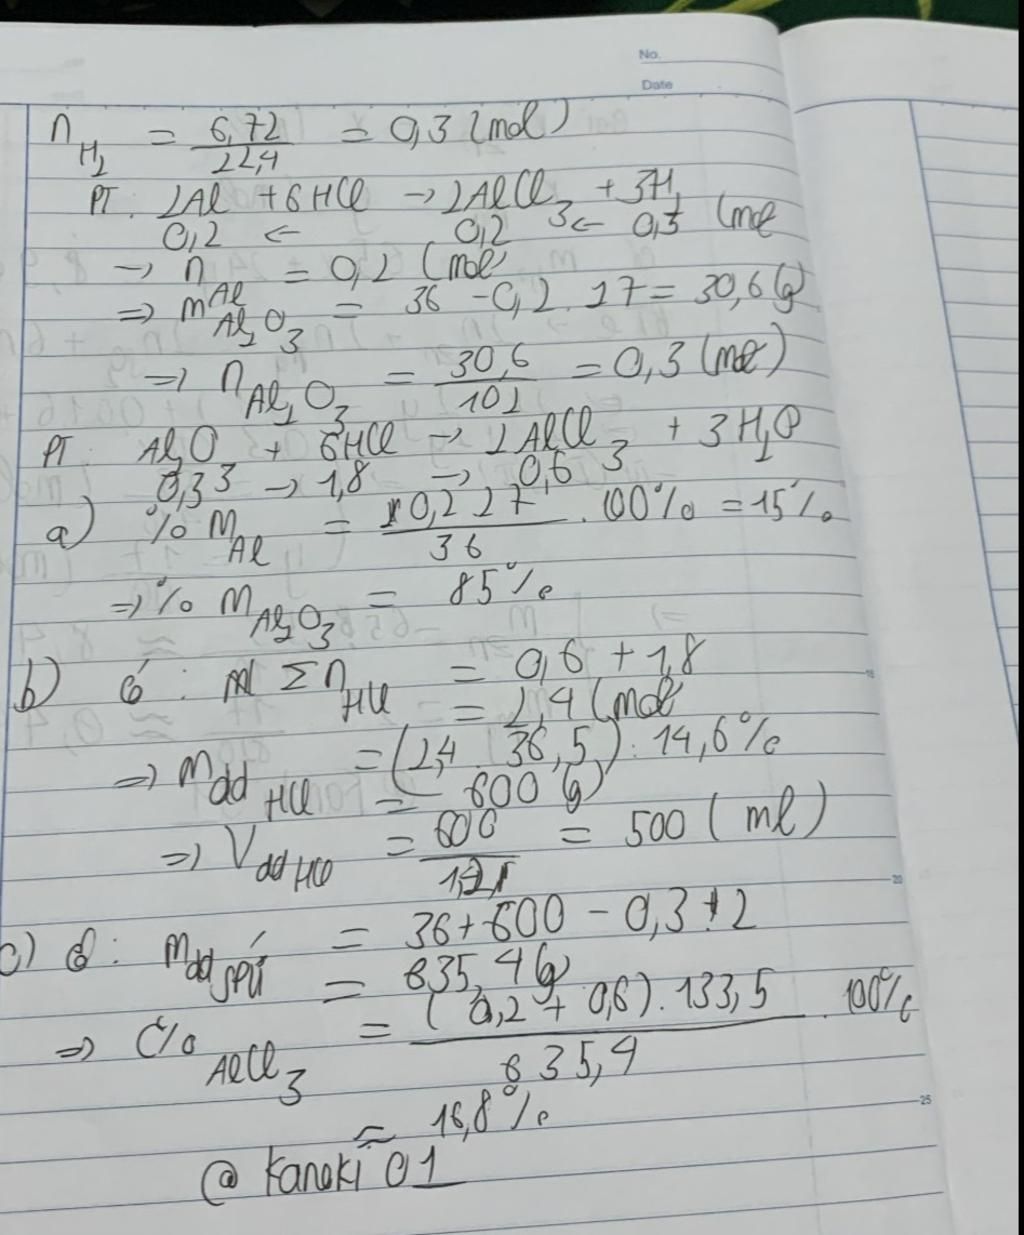 No.
Date
n H₂ = 6,72/22,4 = 0,3 (mol)
PT: 2Al + 6HCl → 2AlCl₃ + 3H₂
0,2 ← 0,2 ← 0,3 (mol
→ n Al = 0,2 (mol)
⇒ m Al₂O₃ = 36 - 0,2 . 27 = 30,6 (g)
⇒ n Al₂O₃ = 30,6/102 = 0,3 (mol)
PT: Al₂O₃ + 6HCl → 2AlCl₃ + 3H₂O
0,3 → 1,8 → 0,6
a) % m Al = 0,2 27/36 . 100% = 15%
⇒ % m Al₂O₃ = 85%
b) Có: Σ n HCl = 0,6 + 1,8
= 2,4 (mol
⇒ m dd HCl = (2,4 . 36,5) : 14,6%
= 600 (g)
⇒ V dd HCl = 600/1,2 = 500 (ml)
c) Có: m dd spứ = 36 + 600 - 0,3 . 2
= 635,4 (g)
⇒ C% AlCl₃ = (0,2 + 0,6) . 133,5/635,4 . 100%
≈ 16,8%
@ Kaneki 01
15
20
25